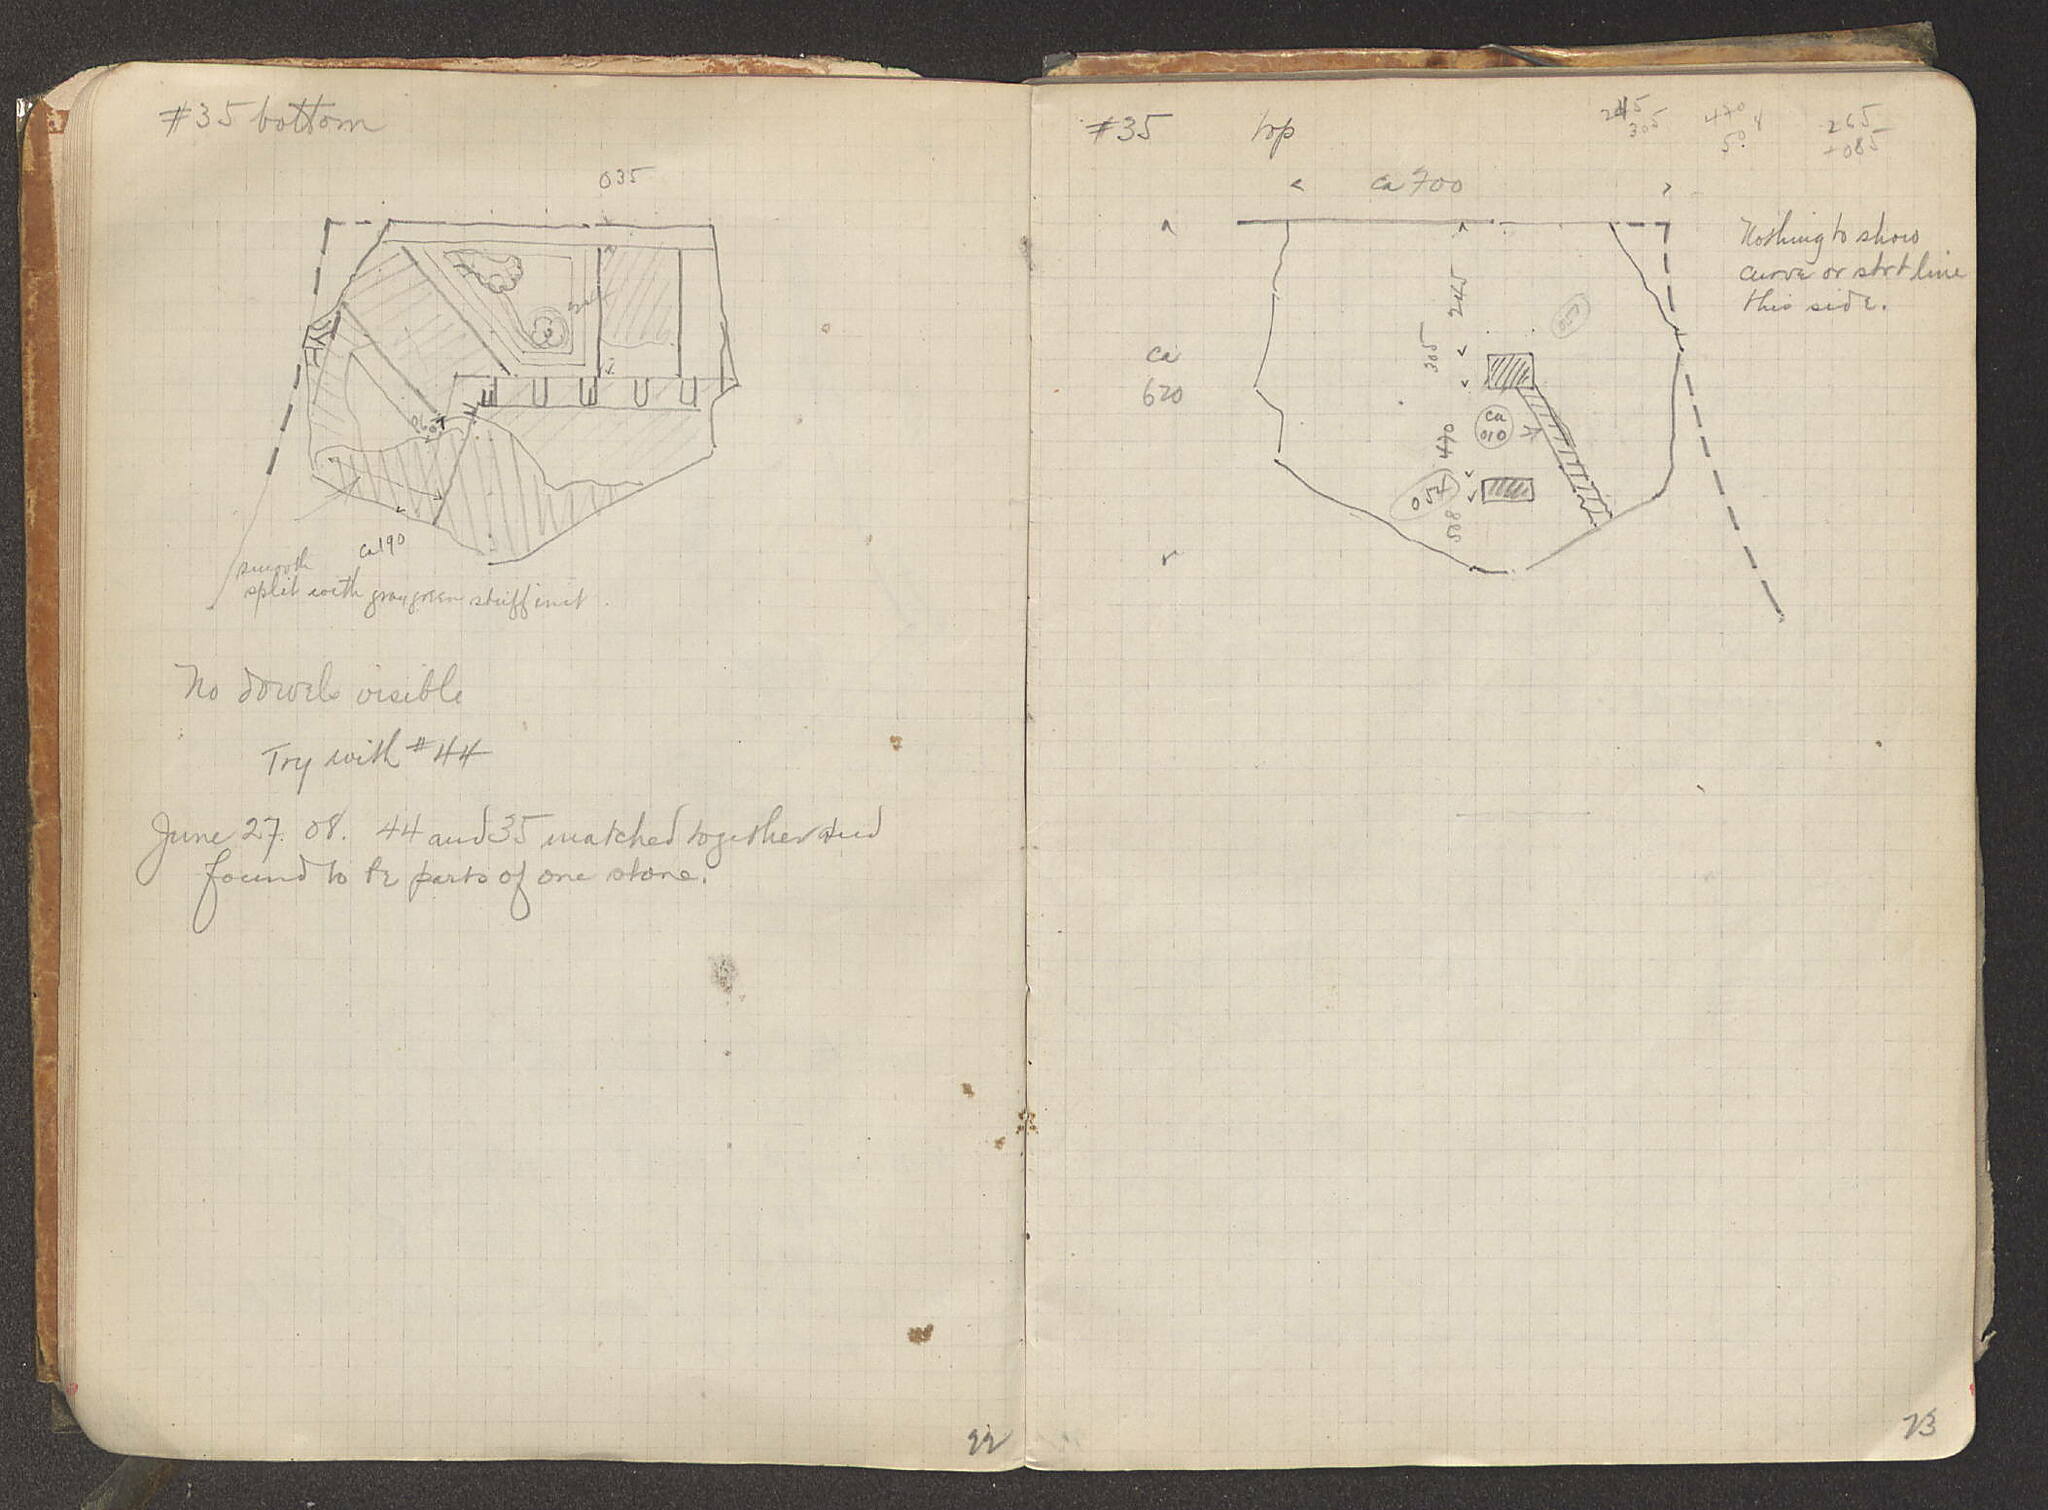 #35 bottom
035
ca 190
smooth
split with gray green stuff in it.
No dowels visible
Try with #44
June 27. 08. 44 and 35 matched together and
found to be parts of one stone.
#35 top
245
305
470
265
085
ca 700
Nothing to show
curve or strt line
this side.
245
305
ca
620
ca
010
470
054
508
73